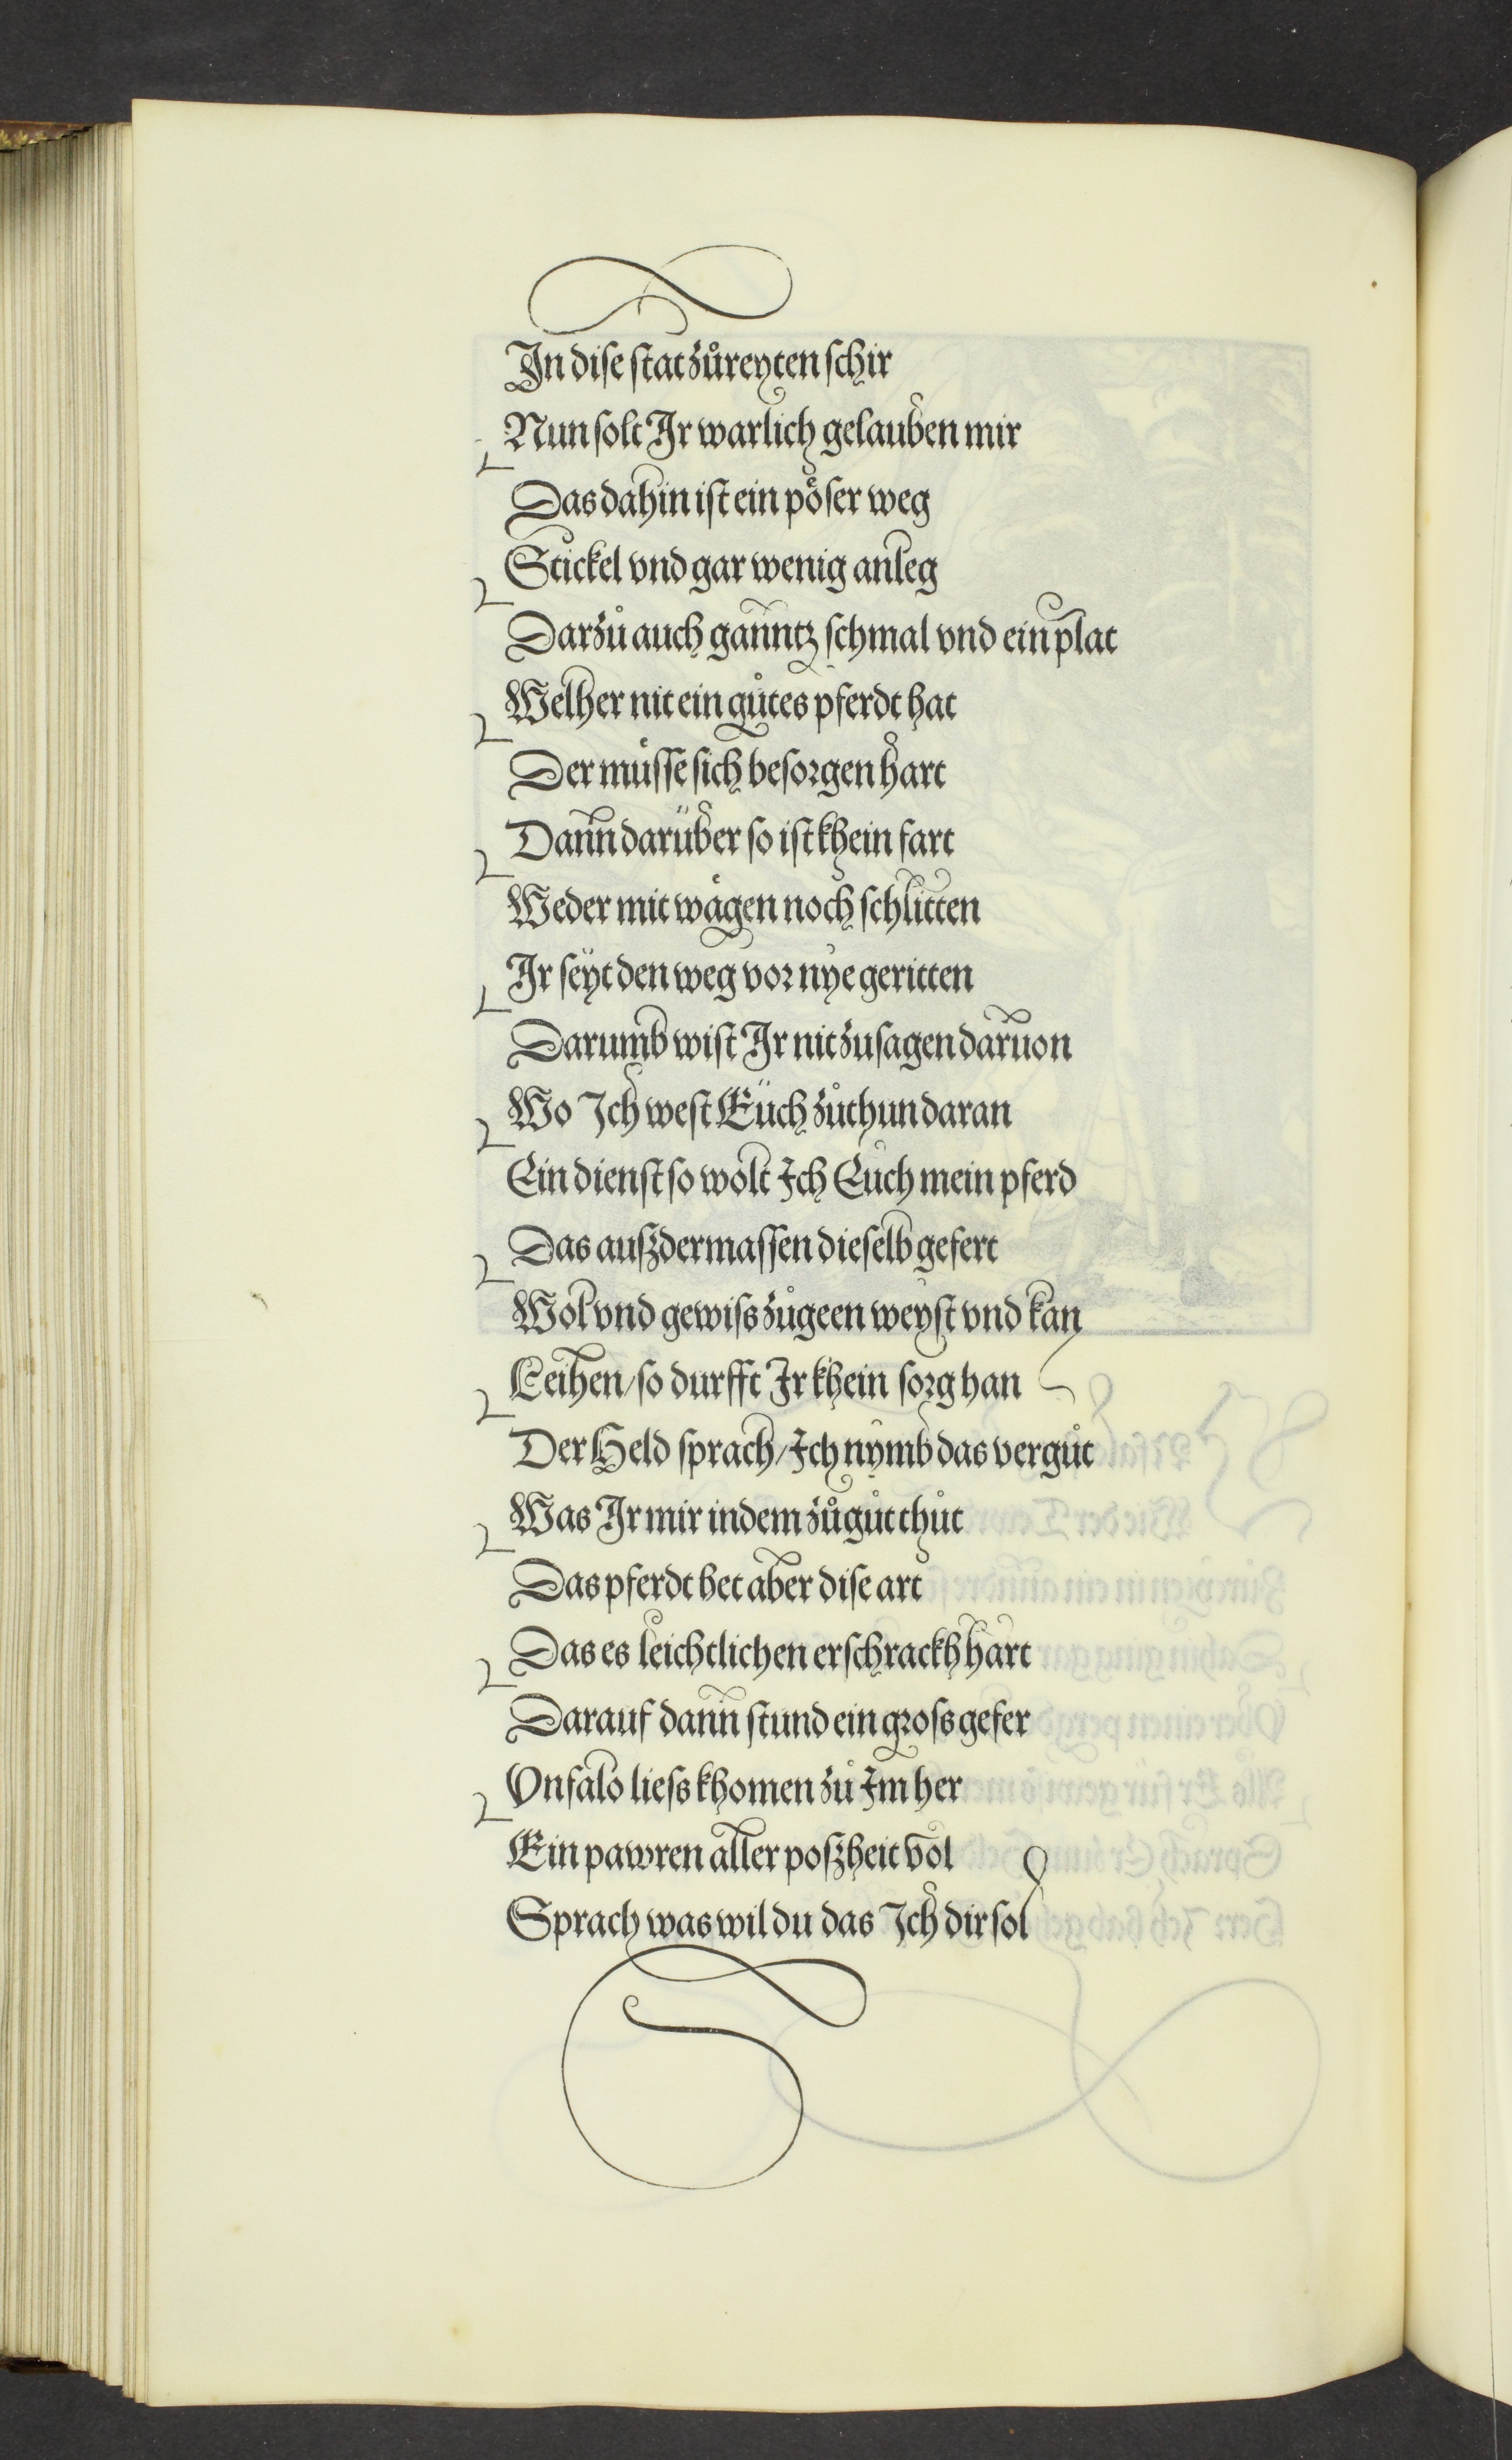 In dise stat zůreyten schir
Nun solt Ir warlich gelauben mir
Das dahin ist ein pöser weg
Stickel vnd gar wenig anleg
Darzů auch ganntz schmal vnd ein plat
Welher nit ein gůtes pferdt hat
Der můsse sich besorgen hart
Dann darüber so ist khein fart
Weder mit wägen noch schlitten
Ir seyt den weg vor nye geritten
Darumb wist Ir nit zusagen daruon
Wo Ich west Eüch zůthun daran
Ein dienst so wolt Ich Euch mein pferd
Das auszdermassen dieselb gefert
Wol vnd gewiss zůgeen weyst vnd kan
Leihen/so durfft Ir khein sorg han
Der Held sprach/Ich nymb das vergůt
Was Ir mir indem zůgůt thůt
Das pferdt het aber dise art
Das es leichtlichen erschrackh hart
Darauf dann stund ein gross gefer
Vnfalo liess khomen zů Im her
Ein pawren aller poszheit vol
Sprach was wildu das Ich dir sol